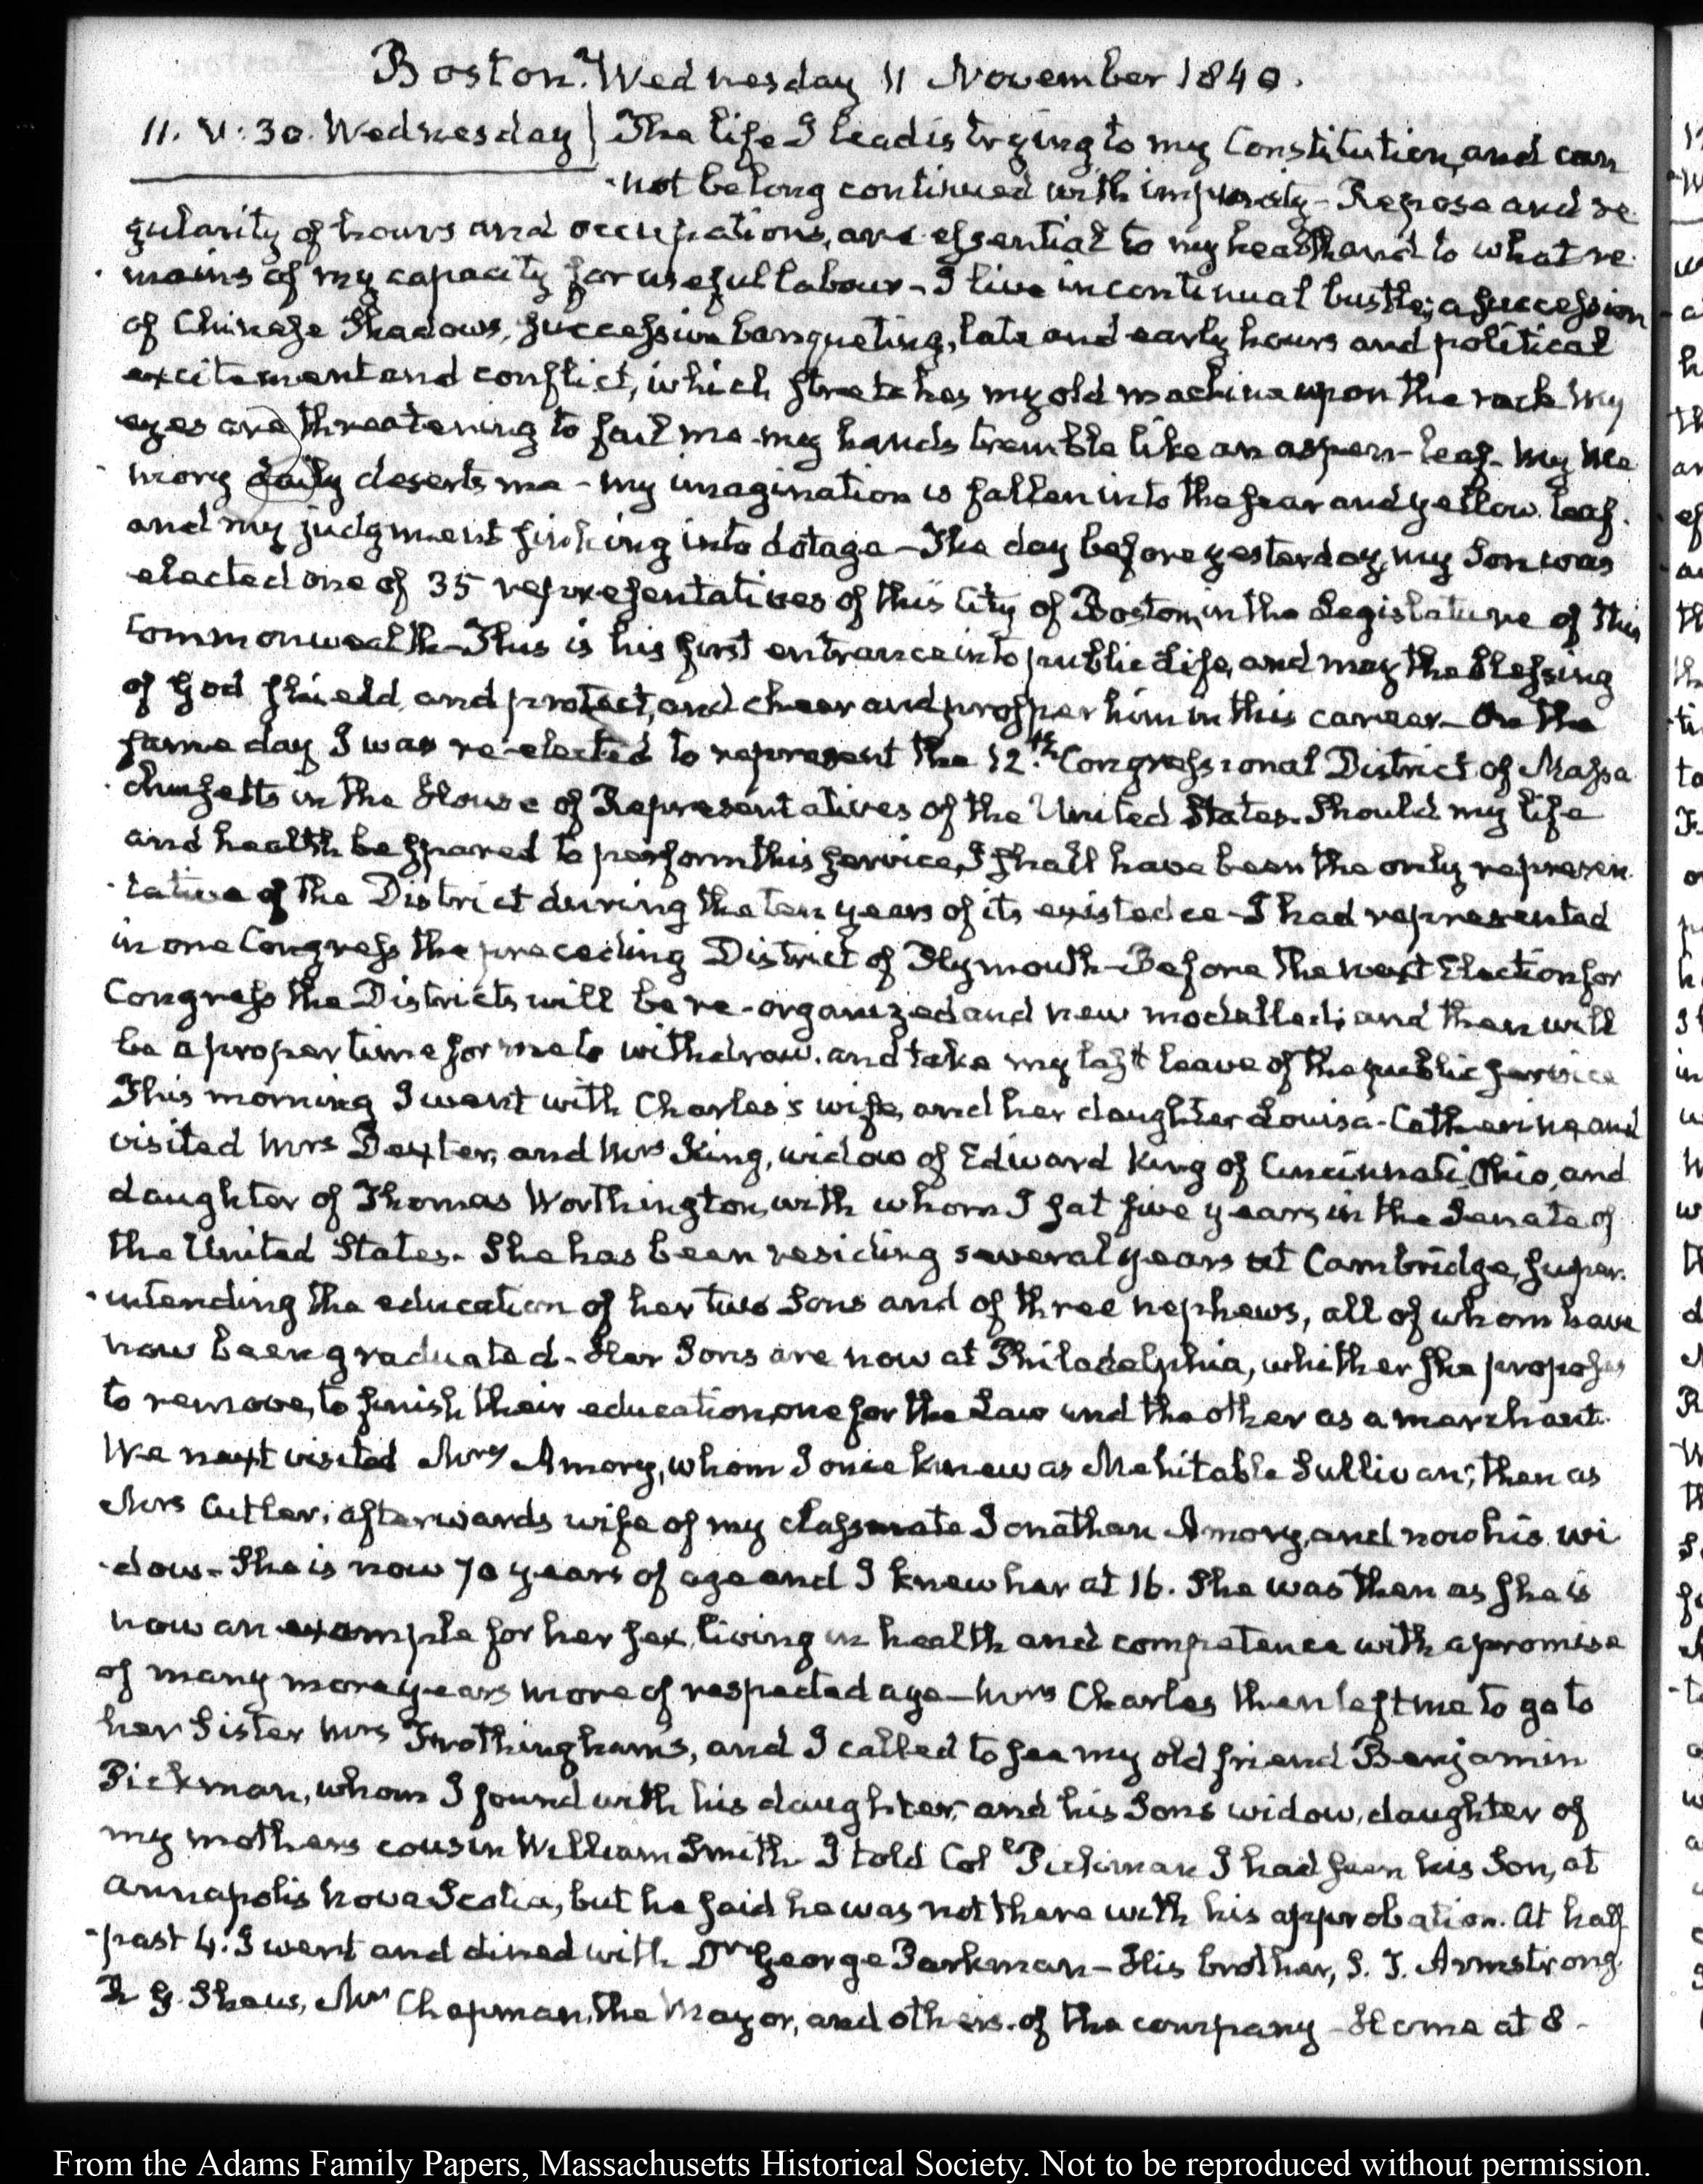 Boston. Wednesday 11 November 1840.
11. V:30. Wednesday | The life I lead is trying to my Constitution, and can
not be long continued with impunity – Repose and re
gularity of hours and occupations, are essential to my health and to what re
mains of my capacity for useful labour – I live in continual bustle; a succession
of Chinese Shadows, succession banqueting, late and early hours and political
excitement and conflict, which stretches my old machine upon the rack My
eyes are threatening to fail me – my hands tremble like an aspen-leaf – My me
mory daily deserts me – my imagination is fallen into the sear and yellow leaf.
and my judgment sinking into dotage – The day before yesterday, my Son was
elected one of 35 representatives of this City of Boston, in the Legislature of this
Commonwealth – This is his first entrance into public Life, and may the blessing
of God shield, and protect, and cheer and prosper him in this career – On the
same day I was re-elected to represent the 12.th Congressional District of Massa
chusetts in the House of Representatives of the United States. Should my life
and health be spared to perform this service, I shall have been the only represen
tative of the District during the ten years of its existedce – I had represented
in one Congress the preceding District of Plymouth – Before the next Election for
Congress the Districts will be re-organized and new modelled; and then will
be a proper time for me to withdraw, and take my last leave of the public service
This morning I went with Charles's wife, and her daughter Louisa-Catherine, and
visited Mrs Dexter, and Mrs King, widow of Edward King of Cincinnati Ohio, and
daughter of Thomas Worthington, with whom I sat five years in the Senate of
the United States. She has been residing several years at Cambridge, super
intending the education of her two Sons and of three nephews, all of whom have
now been graduated – Her Sons are now at Philadelphia, whither she proposes
to remove, to finish their education, one for the Law and the other as a merchant.
We next visited Mrs Amory, whom I once knew as Mehitable Sullivan; then as
Mrs Cutler; afterwards wife of my classmate Jonathan Amory, and now his wi
dow – She is now 70 years of age and I knew her at 16. She was then as she is
now an example for her sex, living in health and competence with a promise
of many more years more of respected age – Mrs Charles then left me to go to
her Sister Mrs Frothingham's, and I called to see my old friend Benjamin
Pickman, whom I found with his daughter, and his Sons widow, daughter of
my mothers cousin William Smith. I told Coll Pickman I had seen his Son, at
Annapolis Nova Scotia, but he said he was not there with his approbation. At half
past 4. I went and dined with Dr George Parkman – His brother, S. T. Armstrong
R G. Shaw, Mr Chapman, the Mayor, and others. of the company – Home at 8 –
From the Adams Family Papers, Massachusetts Historical Society. Not to be reproduced without permission.